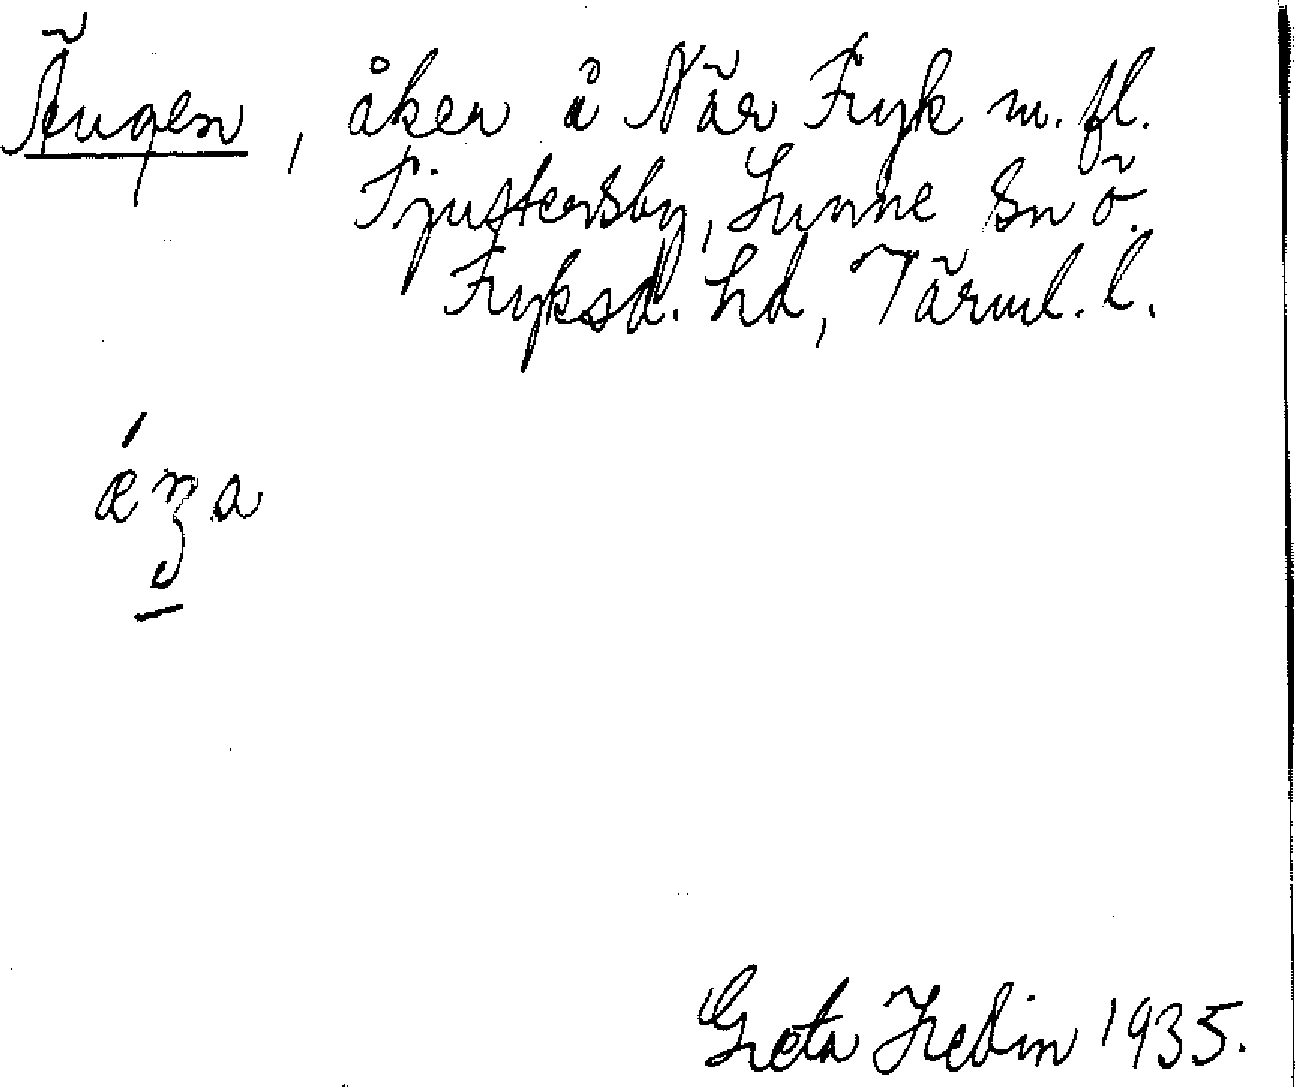 Ängen, åker å När Fryk m. fl.
Fjustersby, Sunne sn ö.
Fryksd. hd, Värml. l.
Greta Hedin 1935.